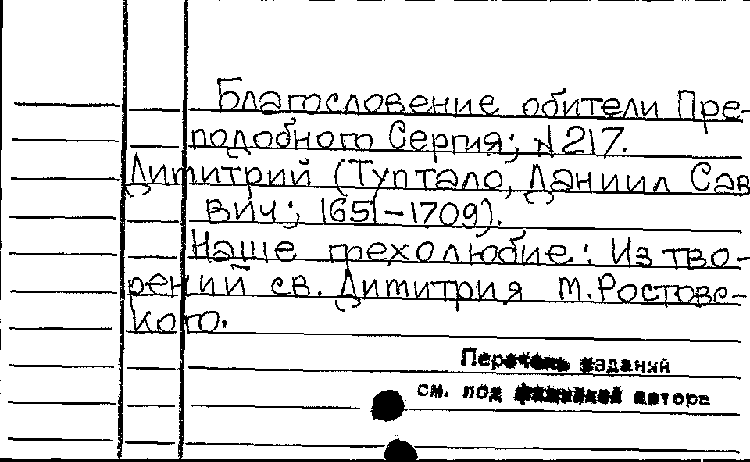 Благословение обители Пре-
подобного Сергия; N 217.
Димитрий (Туптало, Даниил Сав
вич; 1651-1709).
Наше грехолюбие: Из тво-
рений св. Димитрия м. Ростовс-
кого.
Перечень изданий
см. под фамилией автора